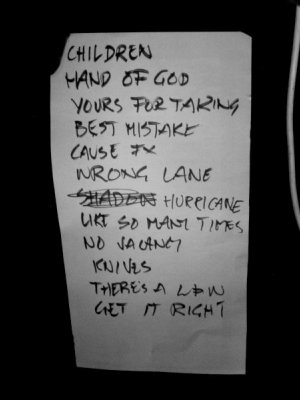 CHILDREN
HAND OF GOD
YOURS FOR TAKING
BEST MISTAKE
CAUSE FX
WRONG LANE
SHADOWS HURRICANE
LIKE SO MANY TIMES
NO VACANCY
KNIVES
THERE'S A LAW
GET IT RIGHT